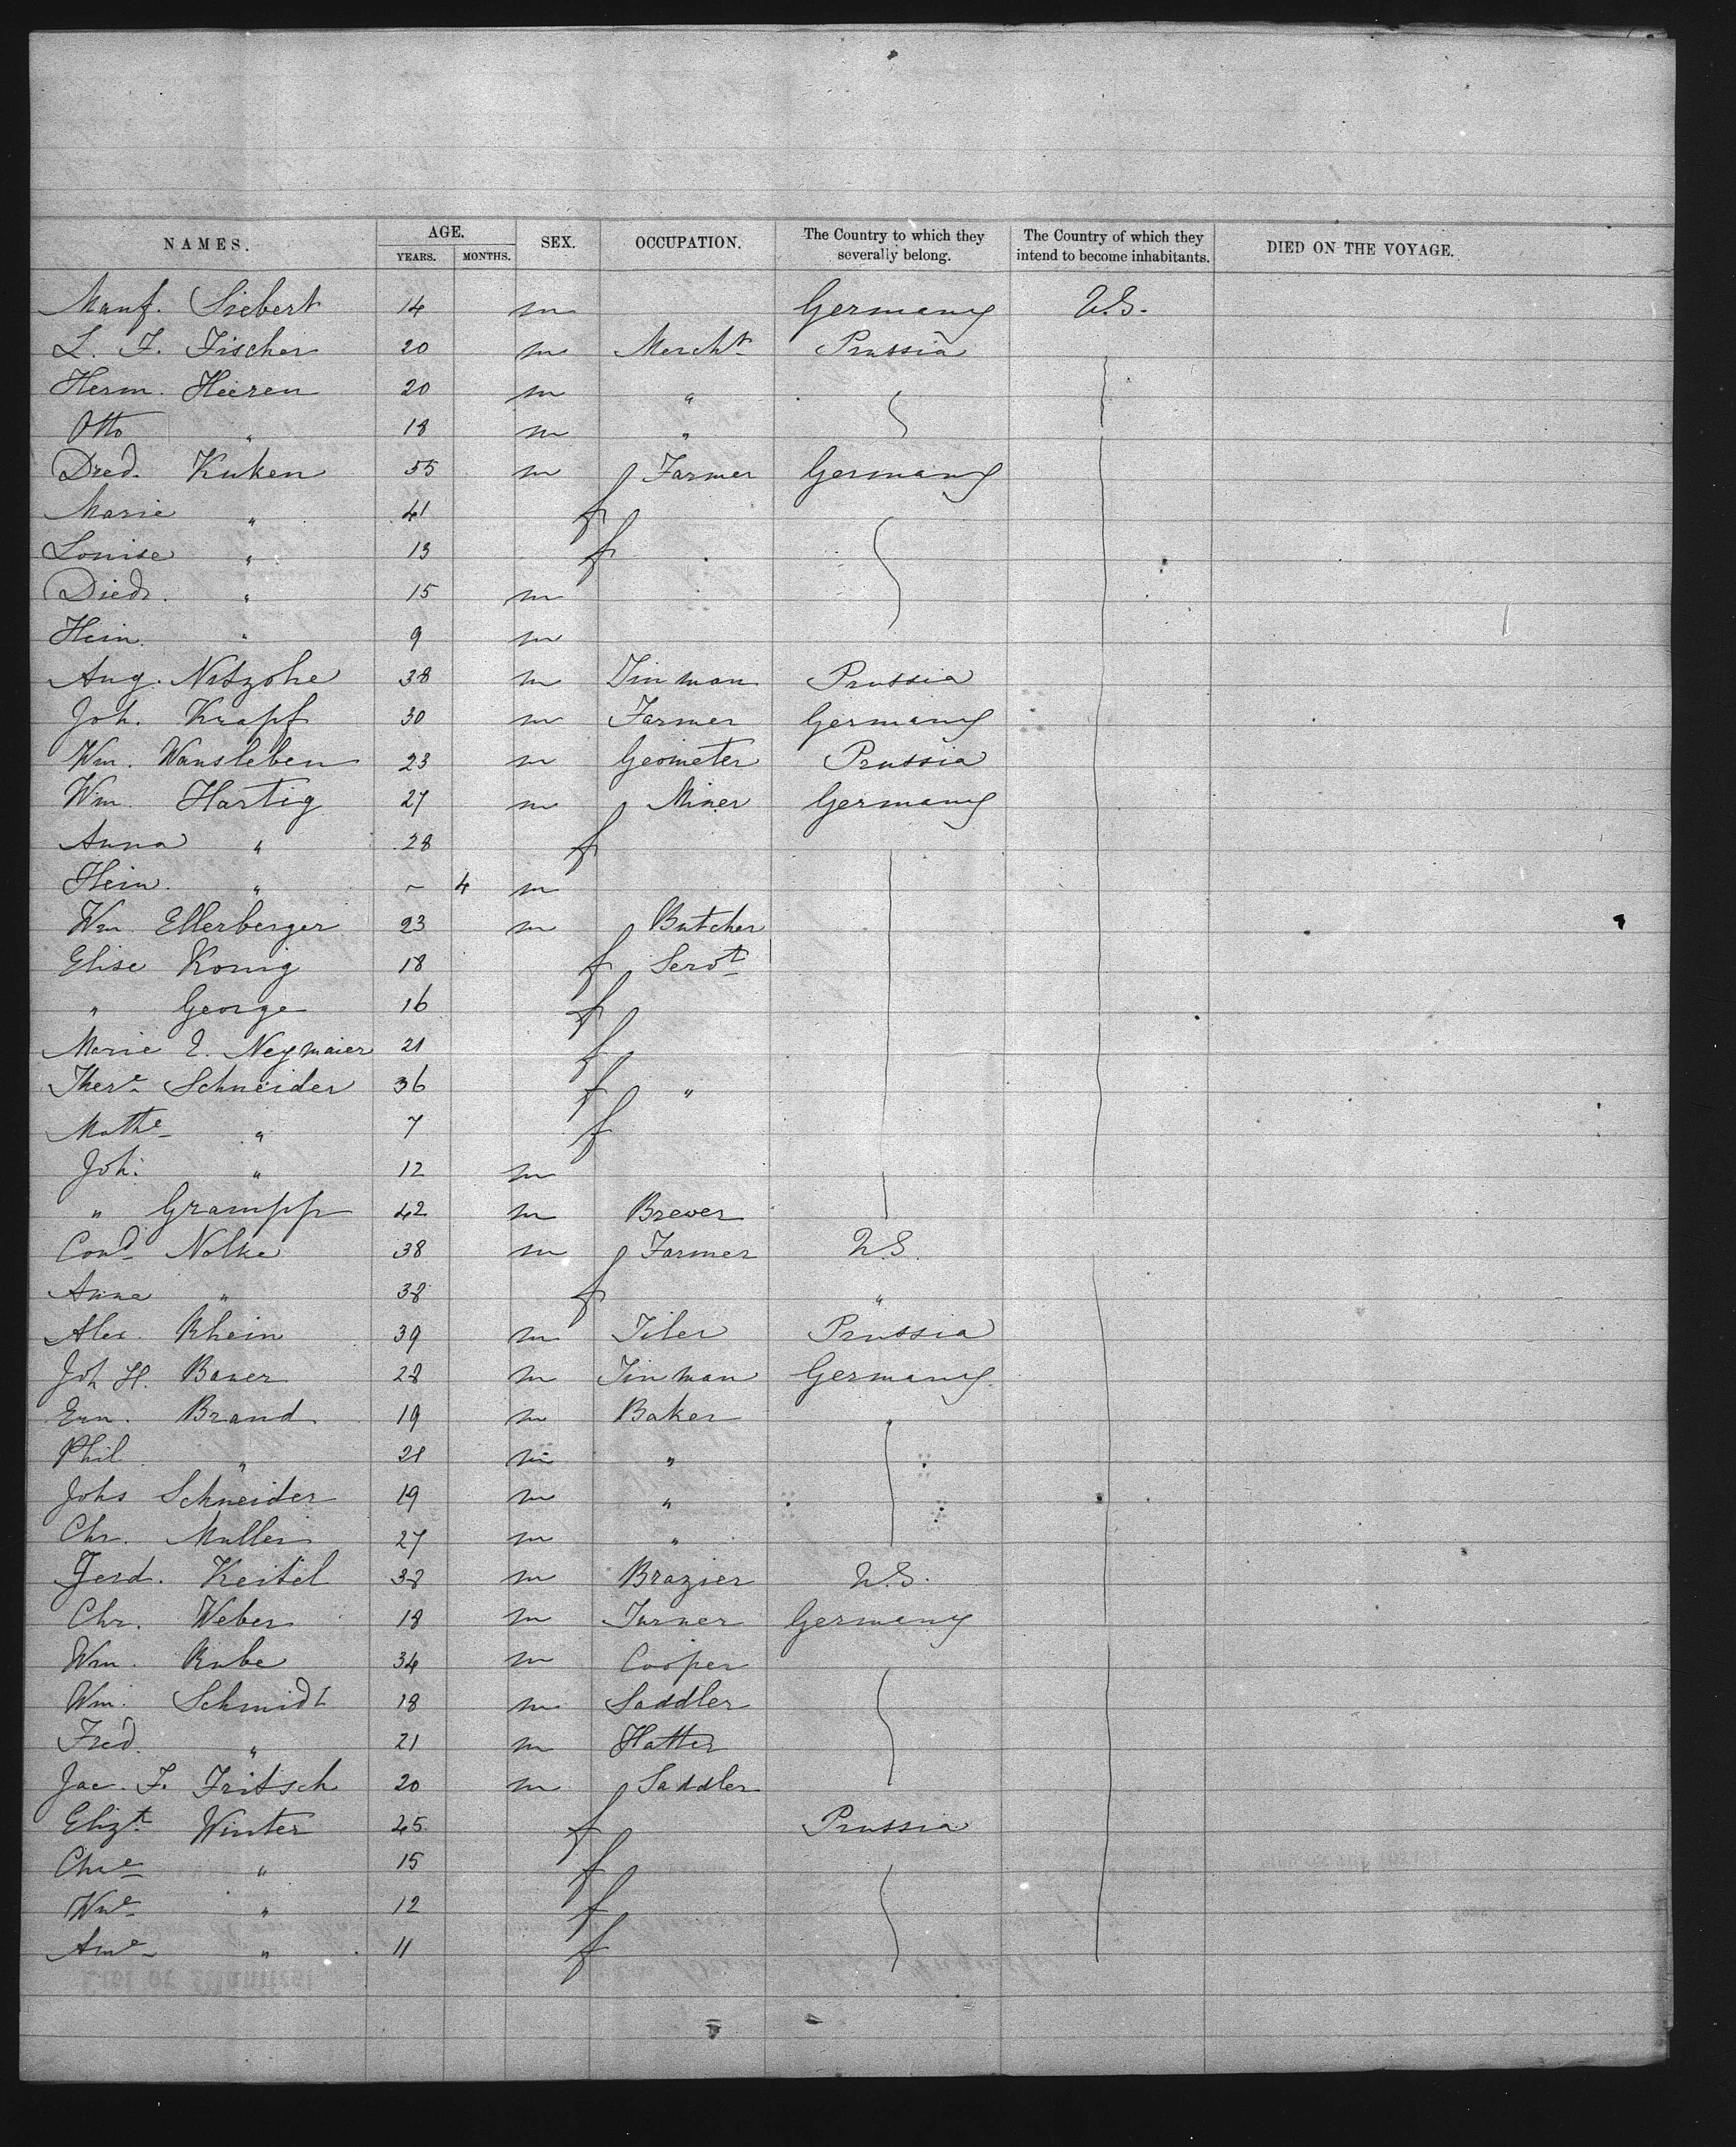 NAMES. AGE. YEARS. MONTHS. SEX. OCCUPATION. The Country to which they severally belong. The Country of which they intend to become inhabitants. DIED ON THE VOYAGE.
Manf. Siebert 14 m Germany U.S.
L. F. Fischer 20 m Mercht Prussia
Herm. Heeren 20 m "
Otto " 18 m "
Died. Kuken 55 m Farmer Germany
Marie " 41 f
Louise " 13 f
Diedr. " 15 m
Hein. " 9 m
Aug. 38 m Tinman Prussia
Joh. Krapf 30 m Farmer Germany
Wm. Wansleben 23 m Geometer Prussia
Wm. Hartig 27 m Miner Germany
Anna " 28 f
Hein. " ~ 4 m
Wm. Ellerberger 23 m Butcher
Elise Konig 18 f Servt
" George 16 f
Marie E. Neymaier 21 f
There Schneider 36 f "
Mathe " 7 f
Joh. " 12 m
" Grampp 42 m Brewer
Cond Nolke 38 m Farmer U.S.
Anna " 38 f "
Alex. Rhein 39 m Tiler Prussia
Joh H. Bauer 28 m Tinman Germany
Ern. Brand 19 m Baker "
Phil. " 21 m "
Johs Schneider 19 m "
Chr. Muller 27 m "
Ferd. Keitel 38 m Brazier U.S.
Chr. Weber 18 m Turner Germany
Wm. Rube 34 m Cooper
Wm. Schmidt 18 m Saddler
Fred. " 21 m Hatter
Jac. F. Fritsch 20 m Saddler
Elizth Winter 45 f Prussia
Chre " 15 f
Wme " 12 f
Ame " 11 f